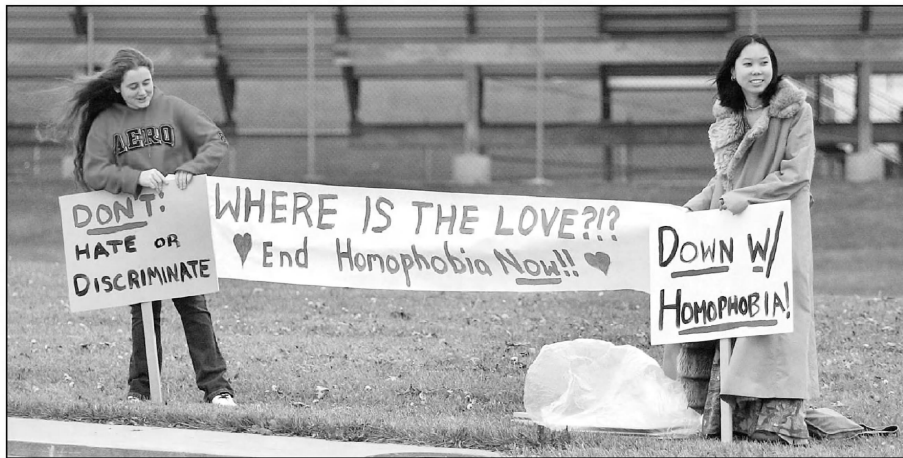 AERO
DON'T!
HATE OR
DISCRIMINATE
WHERE IS THE LOVE?!?
♥ End Homophobia Now!! ♥
DOWN W/
HOMOPHOBIA!